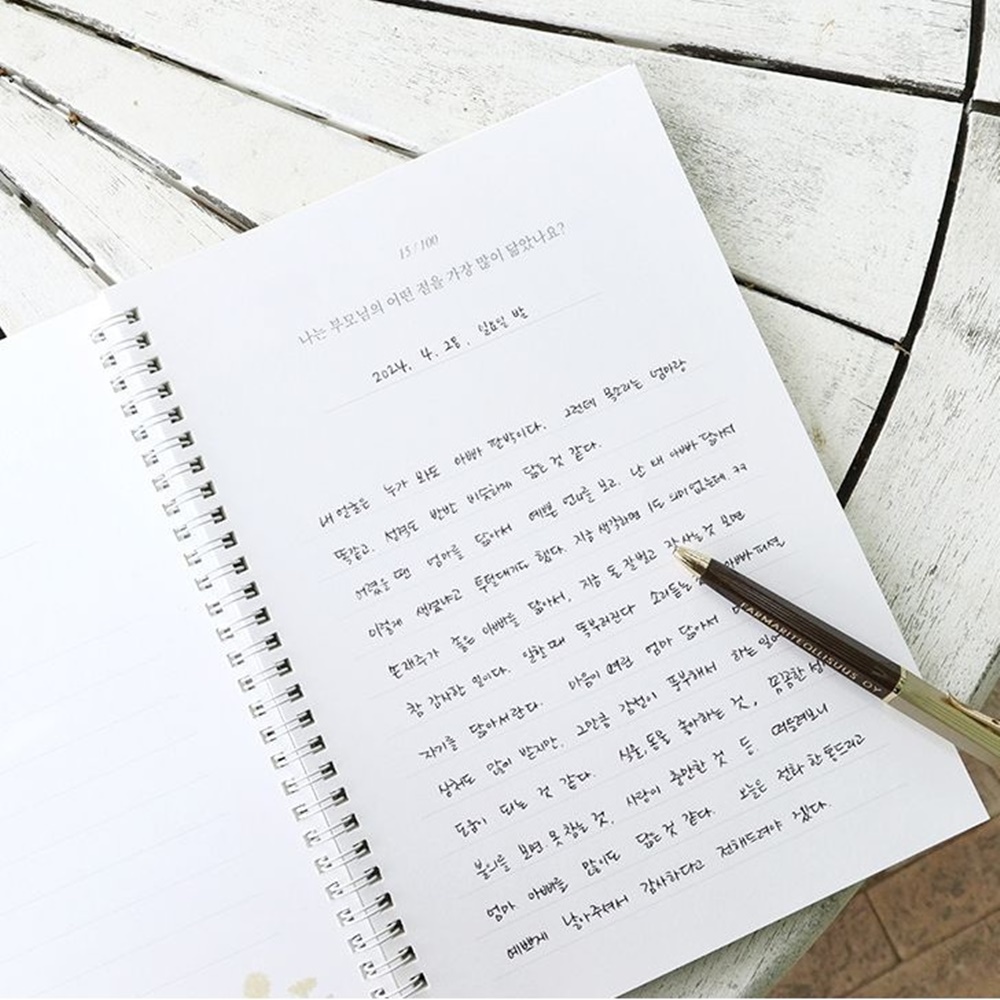 15 / 100
나는 부모님의 어떤 점을 가장 많이 닮았나요?
2024. 4. 28. 일요일 밤
내 얼굴은 누가 봐도 아빠 판박이다. 그런데 목소리는 엄마랑
똑같고. 성격도 반반 비슷하게 닮은 것 같다.
어렸을 땐 엄마를 닮아서 예쁜 언니를 보고, 난 왜 아빠 닮아서
이렇게 생겼냐고 투덜대기도 했다. 지금 생각하면 1도 의미 없는데. ㅋㅋ
손재주가 좋은 아빠를 닮아서, 지금 돈 잘 벌고 잘 사는 것 보면
참 감사한 일이다. 일할 때 똑부러진다 소리 듣는 아빠가 되면
자기를 닮아서란다. 마음이 여린 엄마 닮아서
상처도 많이 받지만, 그만큼 감성이 풍부해서 하는 일에
도움이 되는 것 같다. 식물, 동물 좋아하는 것, 꼼꼼한
불의를 보면 못 참는 것, 사랑이 충만한 것 등. 떠올려보니
엄마 아빠를 많이도 닮은 것 같다. 오늘은 전화 한 통 드리고
예쁘게 낳아주셔서 감사하다고 전해드려야 겠다.
FARMARITEOLLISUUS OY